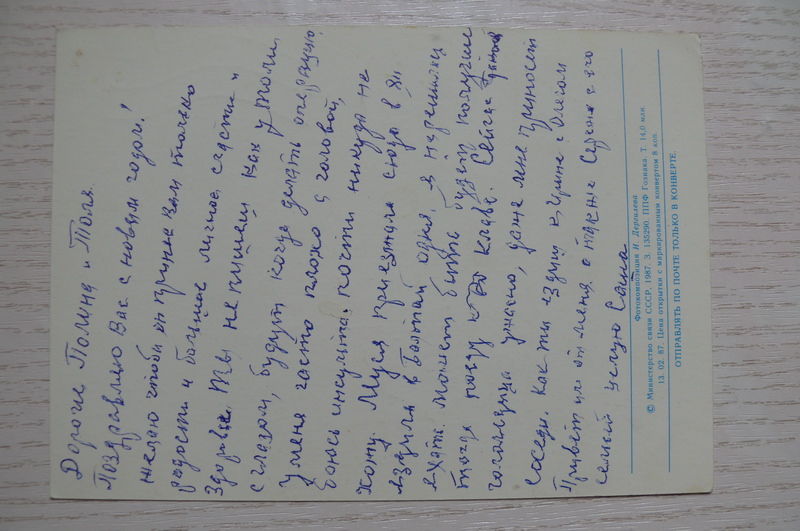 Дорогие Полина и Толя.
Поздравляю Вас с новым годом!
желаю чтобы он принес Вам только
радости и большое личное счастье и
здоровье. Ты не пишеш как у Толи
с глазом, будут когда делать операцию
У меня часто плохо с головой,
боюсь инсульта. почти никуда не
хожу. Муся приезжала сюда в Ял
ездила в одна, я не решилась
ехать. Может быть будет получше
тогда поеду к Клаве. Сейчас
гололедица ужасно, даже мне приносят
соседи. Как ты ездиш к Ирине с Олегом
Привет им от меня, а также Сереже с его
семьей целую
Фотокомпозиция И. Дергилева
© Министерство связи СССР, 1987. З. 135290. ППФ Гознака. Т. 14,0 млн.
13. 02. 87. Цена открытки с маркированным конвертом 8 коп.
ОТПРАВЛЯТЬ ПО ПОЧТЕ ТОЛЬКО В КОНВЕРТЕ.